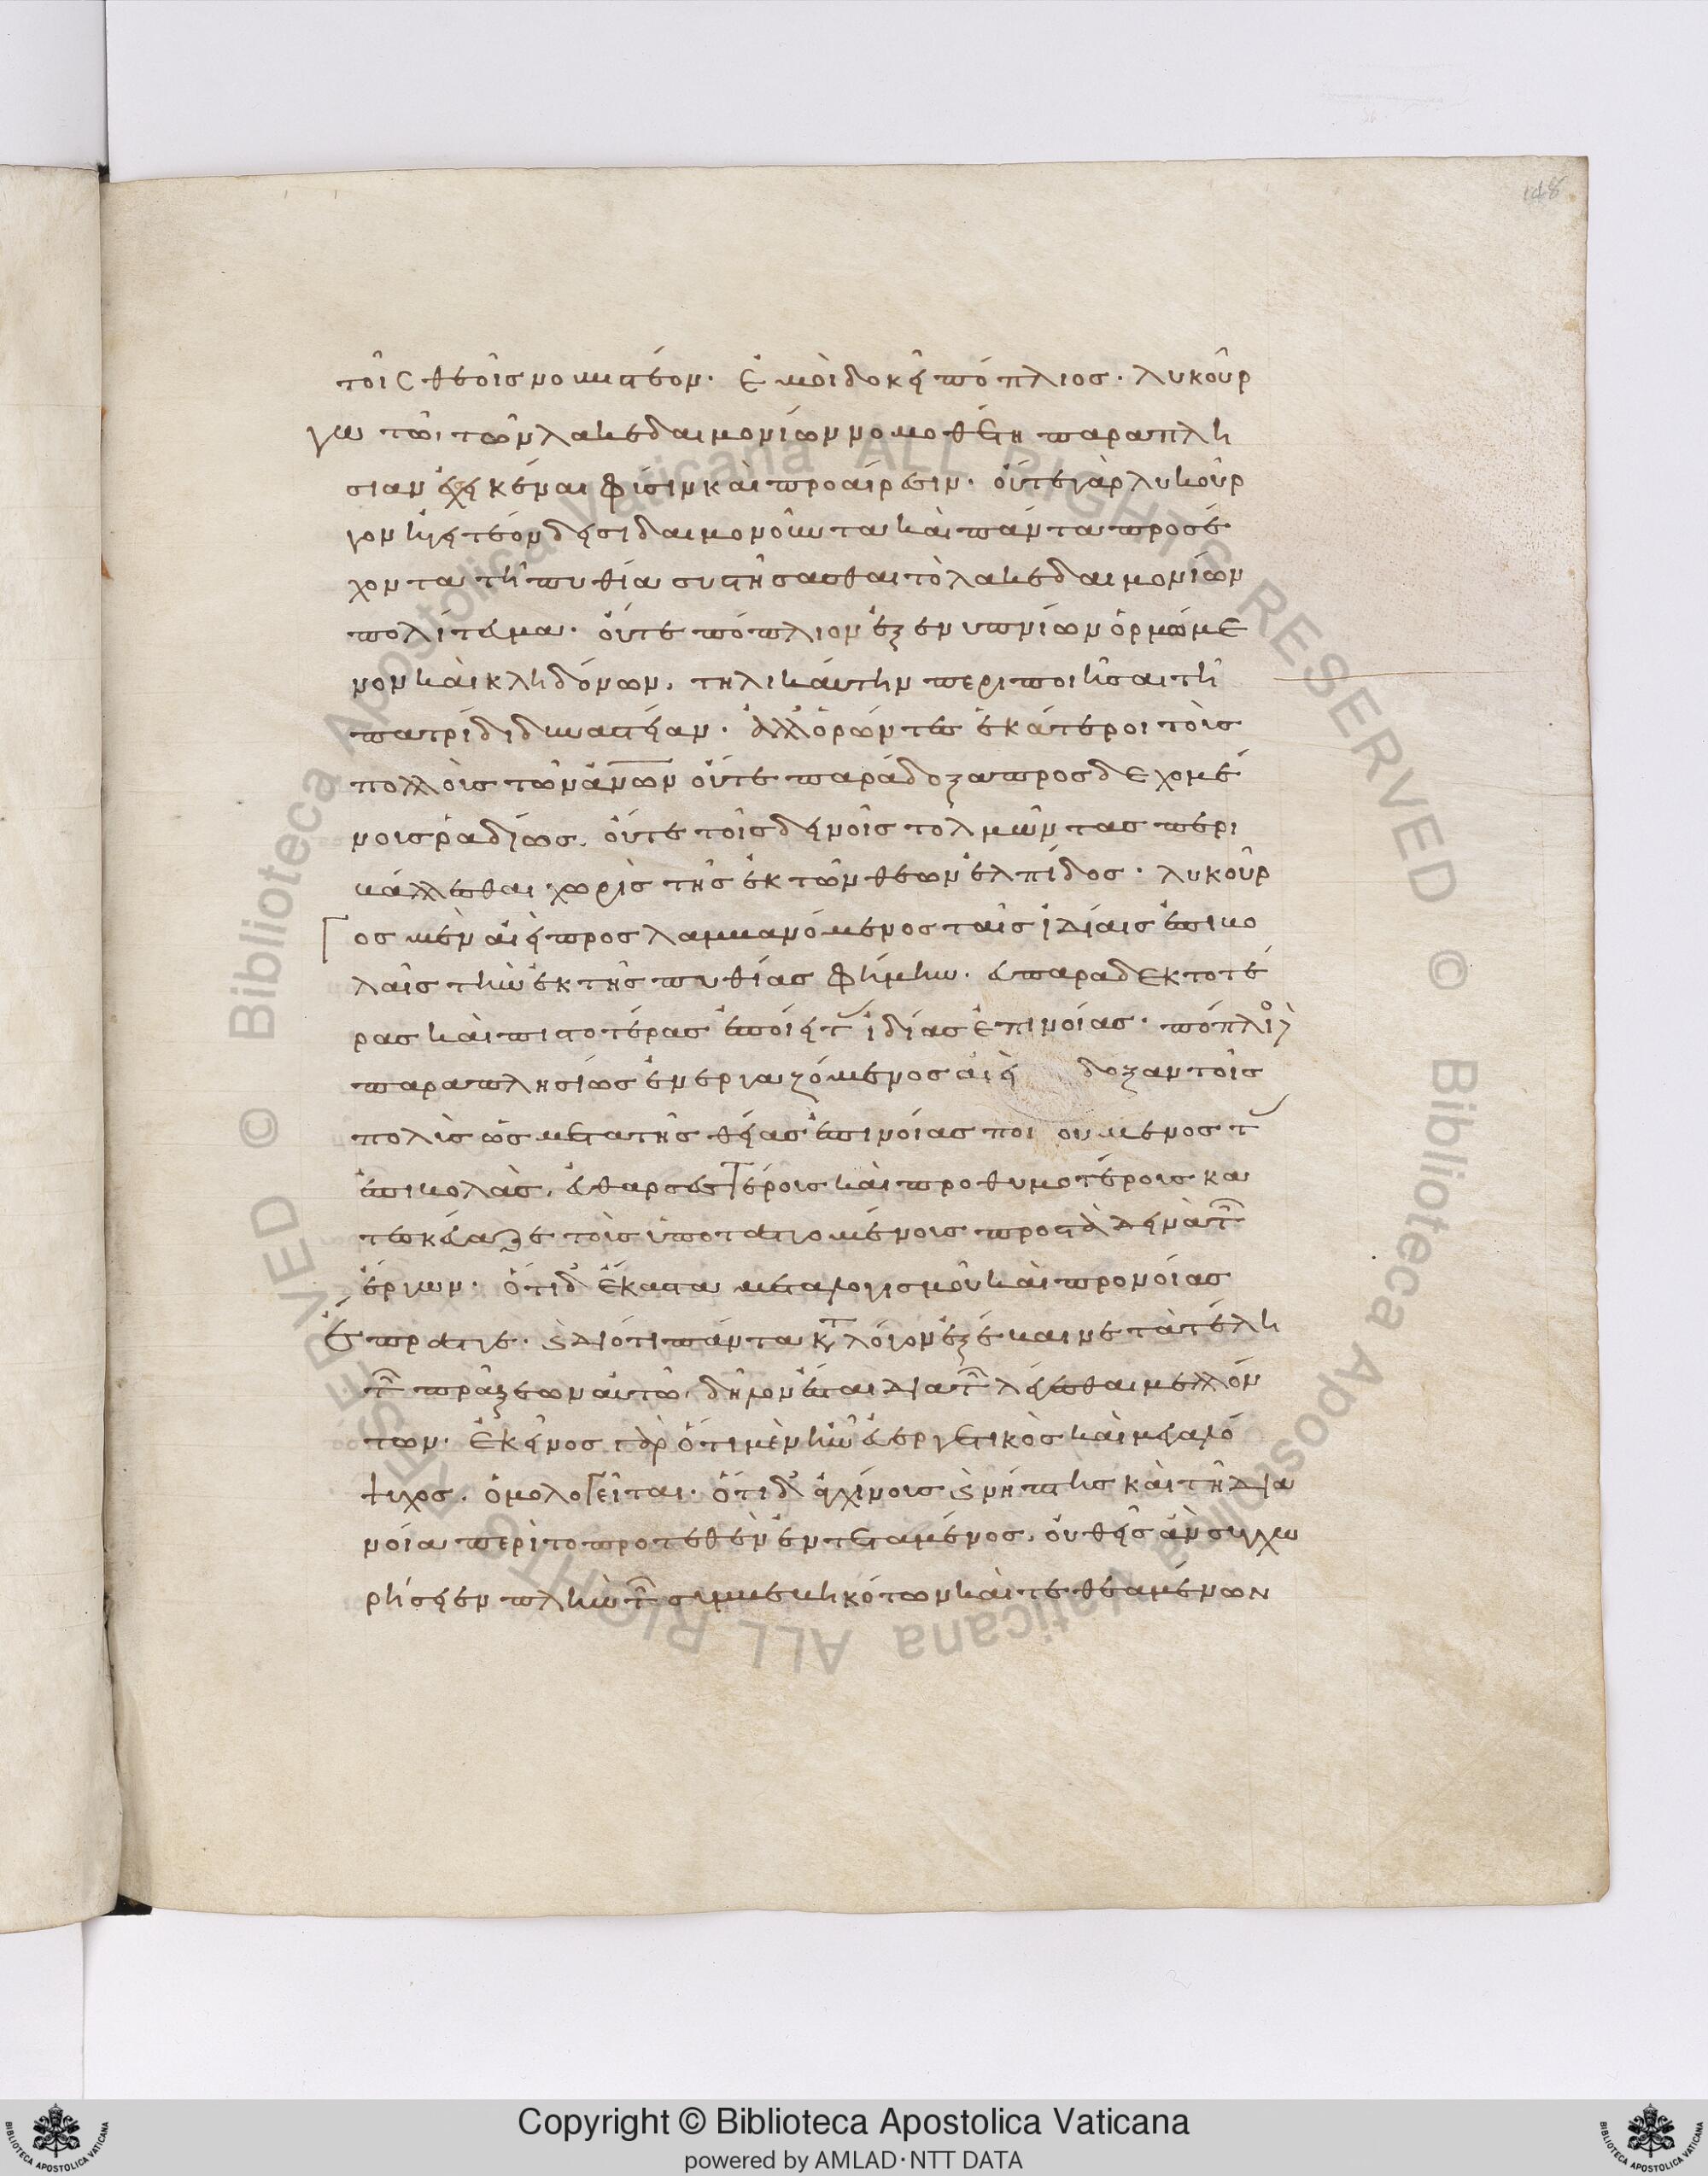 148
τοῖς θεοῖς νομιστέον· ἐμοὶ δοκεῖ πόπλιος· λυκούρ
γω τῶ τῶν λακεδαιμονίων νομοθέτη παραπλη
σίαν ἐσχηκέναι φύσιν καὶ προαίρεσιν· οὔτε γὰρ λυκοῦρ
γον ἡγητέον δεισιδαιμονοῦντα καὶ πάντα προσέ
χοντα τῆ πυθία συστήσασθαι τὸ λακεδαιμονίων
πολίτευμα· οὔτε πόπλιον ἐξ ἐνυπνίων ὁρμώμε
νον καὶ κληδόνων, τηλικαύτην περιποιῆσαι τῆ
πατρίδι δυναστείαν· ἀλλ' ὁρῶντες ἑκάτεροι τοὺς
πολλοὺς τῶν ἀνων οὔτε παράδοξα προσδεχομέ
νους ῥαδίως, οὔτε τοῖς δεινοῖς τολμῶντας παρα
βάλλεσθαι χωρὶς τῆς ἐκ τῶν θεῶν ἐλπίδος· λυκοῦρ
γος μὲν αἰεὶ προσλαμβανόμενος ταῖς ἰδίαις ἐπιβο
λαῖς τὴν ἐκ τῆς πυθίας φήμην· εὐπαραδεκτοτέ
ρας καὶ πιστοτέρας ἐποίει τ ἰδίας ἐπινοίας· πόπλιος δὲ
παραπλησίως ἐνεργαζόμενος αἰεὶ δόξαν τοῖς
πολοῖς ὡς μετὰ τῆς θείας ἐπινοίας ποιούμενος τ
ἐπιβολὰς, εὐθαρσεστέρους καὶ προθυμοτέρους κα
τεσκεύαζε τοὺς ὑποταττομένους πρὸς τὰ δεινὰ τ
ἔργων· ὅτι δ' ἕκαστα μετὰ λογισμοῦ καὶ προνοίας
ἔπραττε· κ διότι πάντα κτ λόγον ἐξέβαινε τὰ τέλη
τ πράξεων αὐτῶ, δῆλον ἔσται διὰ τ λέγεσθαι μελλόν
των· ἐκεῖνος γὰρ ὅτι μὲν ἦν εὐεργετικὸς καὶ μεγαλό
ψυχος, ὁμολογεῖται· ὅτι δ' ἀγχίνους κ νήπτης καὶ τῆ δια
νοία περὶ τὸ προτεθὲν ἐντεταμένος, οὐθεὶς ἂν συγχω
ρήσειεν πλὴν τ συμβεβιωκότων καὶ τεθεαμένων
Biblioteca Apostolica Vaticana ALL RIGHTS RESERVED ©
Biblioteca Apostolica Vaticana ALL RIGHTS RESERVED ©
Copyright © Biblioteca Apostolica Vaticana
powered by AMLAD·NTT DATA
BIBLIOTECA APOSTOLICA VATICANA
BIBLIOTECA APOSTOLICA VATICANA